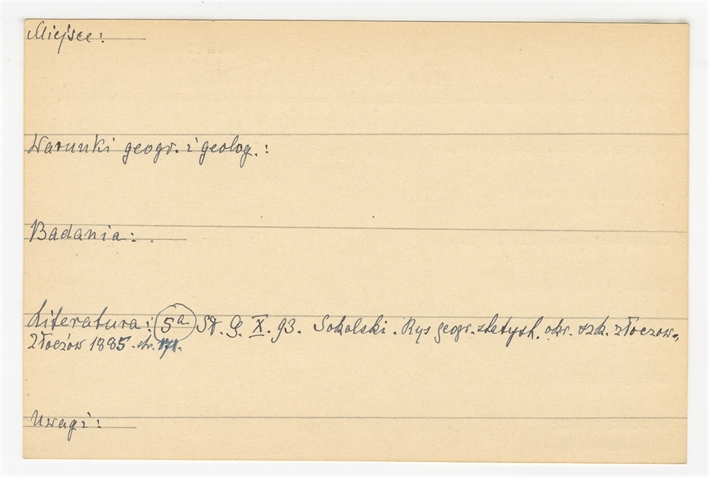 Miejsce:
Warunki geogr. i geolog.:
Badania:
Literatura: 5a Sł. G. X. 93. Sokolski. Rys geogr. statyst. okr. szk. złoczow.
Złoczów 1885. str. 171.
Uwagi: